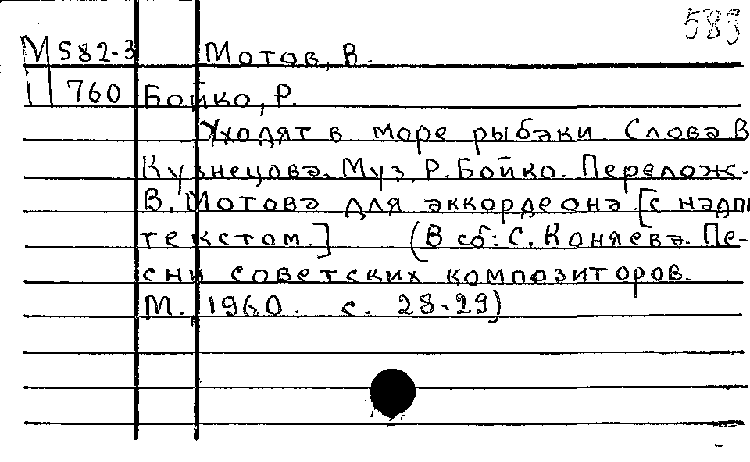 589
М 582-3 Мотов, В.
1 760 Бойко, Р.
Уходят в море рыбаки. Слова В
Кузнецова. Муз. Р. Бойко. Перелож.
В. Мотова для аккордеона [с надп
текстом.] (В сб: С. Коняева. Пе-
сни советских композиторов.
М., 1960. с. 28-29)